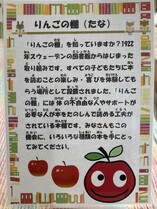 りんごの棚（たな）
「りんごの棚」を知っていますか？1922
年スウェーデンの図書館からはじまった
取り組みです。すべての子どもたちに本
を読むことの楽しみ・喜びを体験しても
らう場所として設置されました。「りん
ごの棚」には体の不自由な人やサポートが
必要な人が本をたのしんで読める工夫が
されている本棚です。みなさんもこの
機会に、いろいろな種類の本を手にとっ
てみてください。